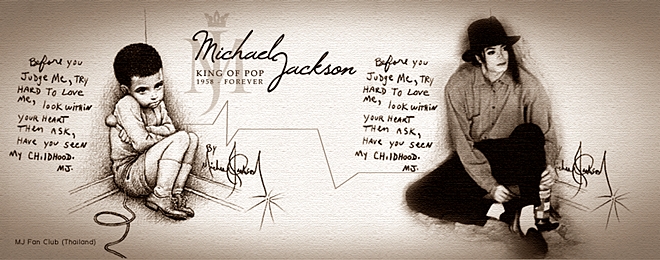 Before you
Judge Me, TRY
HARD TO LOVE
Me, look within
YOUR HEART
Then ASK,
HAVE YOU SEEN
MY CHILDHOOD.
MJ.
By
Michael Jackson
MJ
Michael Jackson
KING OF POP
1958 - FOREVER
Before you
Judge Me, TRY
HARD TO LOVE
Me, look within
YOUR HEART
Then ASK,
HAVE YOU SEEN
MY CHILDHOOD.
MJ.
Michael Jackson
MJ Fan Club (Thailand)